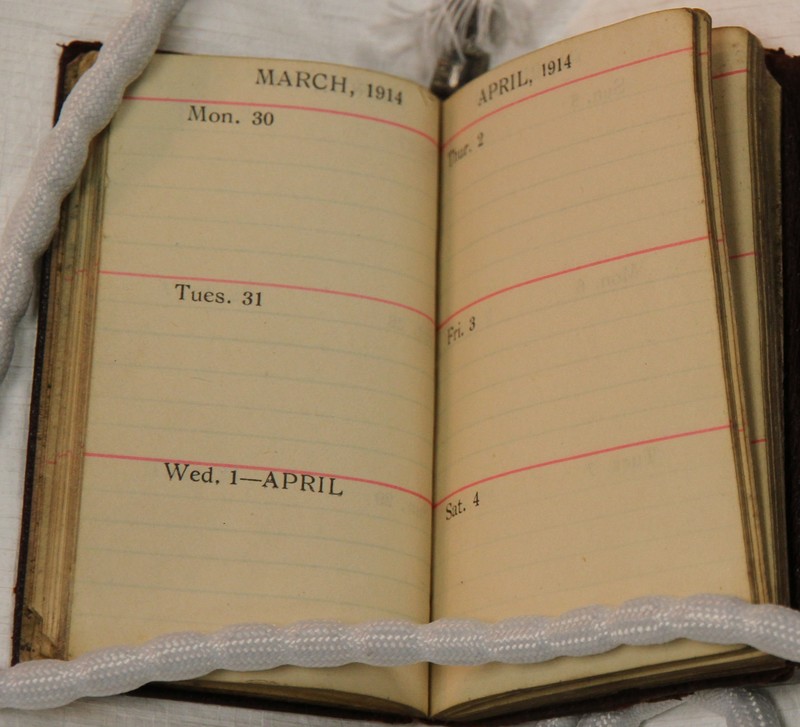 MARCH, 1914
Mon. 30
Tues. 31
Wed. 1—APRIL
APRIL, 1914
Thur. 2
Fri. 3
Sat. 4